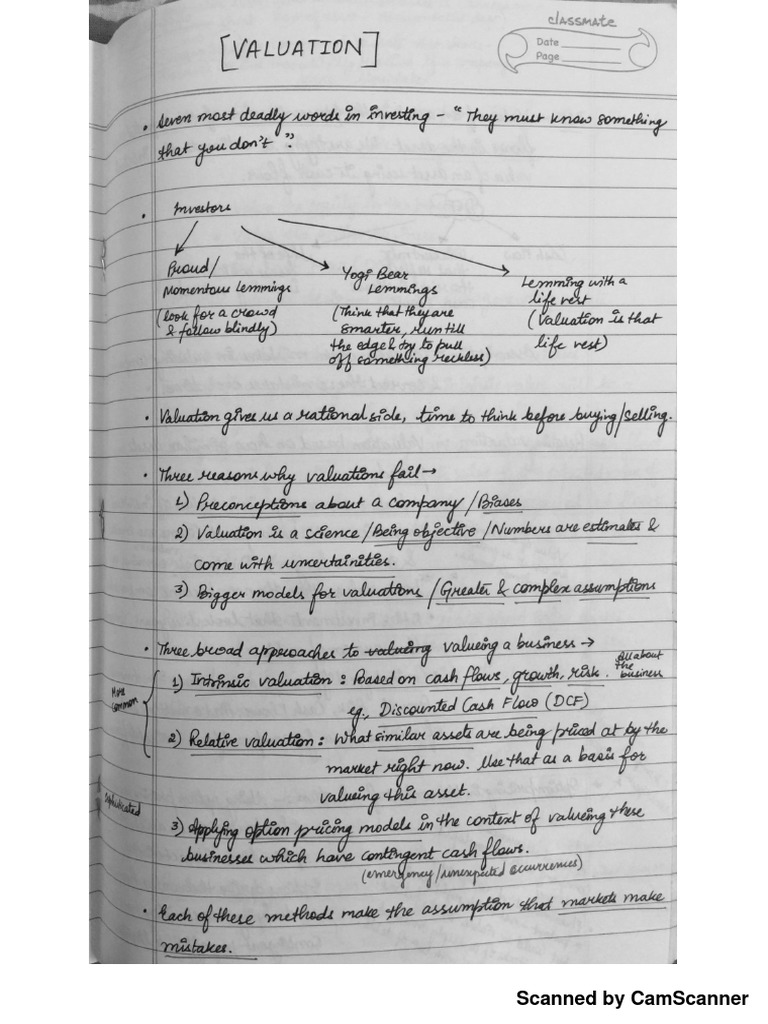 classmate
Date
Page
[VALUATION]
• Seven most deadly words in investing - "They must know something
that you don't".
• Investors
Proud/
Momentous Lemmings
(look for a crowd
& follow blindly)
Yogi Bear
Lemmings
(Think that they are
smarter, run till
the edge & try to pull
off something reckless)
Lemming with a
life vest
(Valuation is that
life vest)
• Valuation gives us a rational side, time to think before buying/selling.
• Three reasons why valuations fail →
1) Preconceptions about a company/Biases
2) Valuation is a science/Being objective/Numbers are estimates &
come with uncertainities.
3) Bigger models for valuations/Greater & complex assumptions
• Three broad approaches to valueing valueing a business →
More
common
1) Intrinsic valuation: Based on cash flows, growth, risk.
All about
the
business
eg., Discounted Cash Flow (DCF)
2) Relative valuation: What similar assets are being priced at by the
market right now. Use that as a basis for
valueing this asset.
Sophisticated
3) Applying option pricing models in the context of valueing these
businesses which have contingent cash flows.
(emergency/unexpected occurrences)
• Each of these methods make the assumption that markets make
mistakes.
Scanned by CamScanner